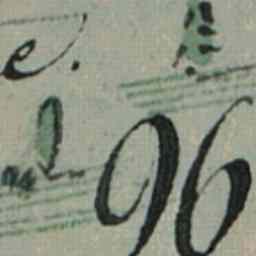 e.
96